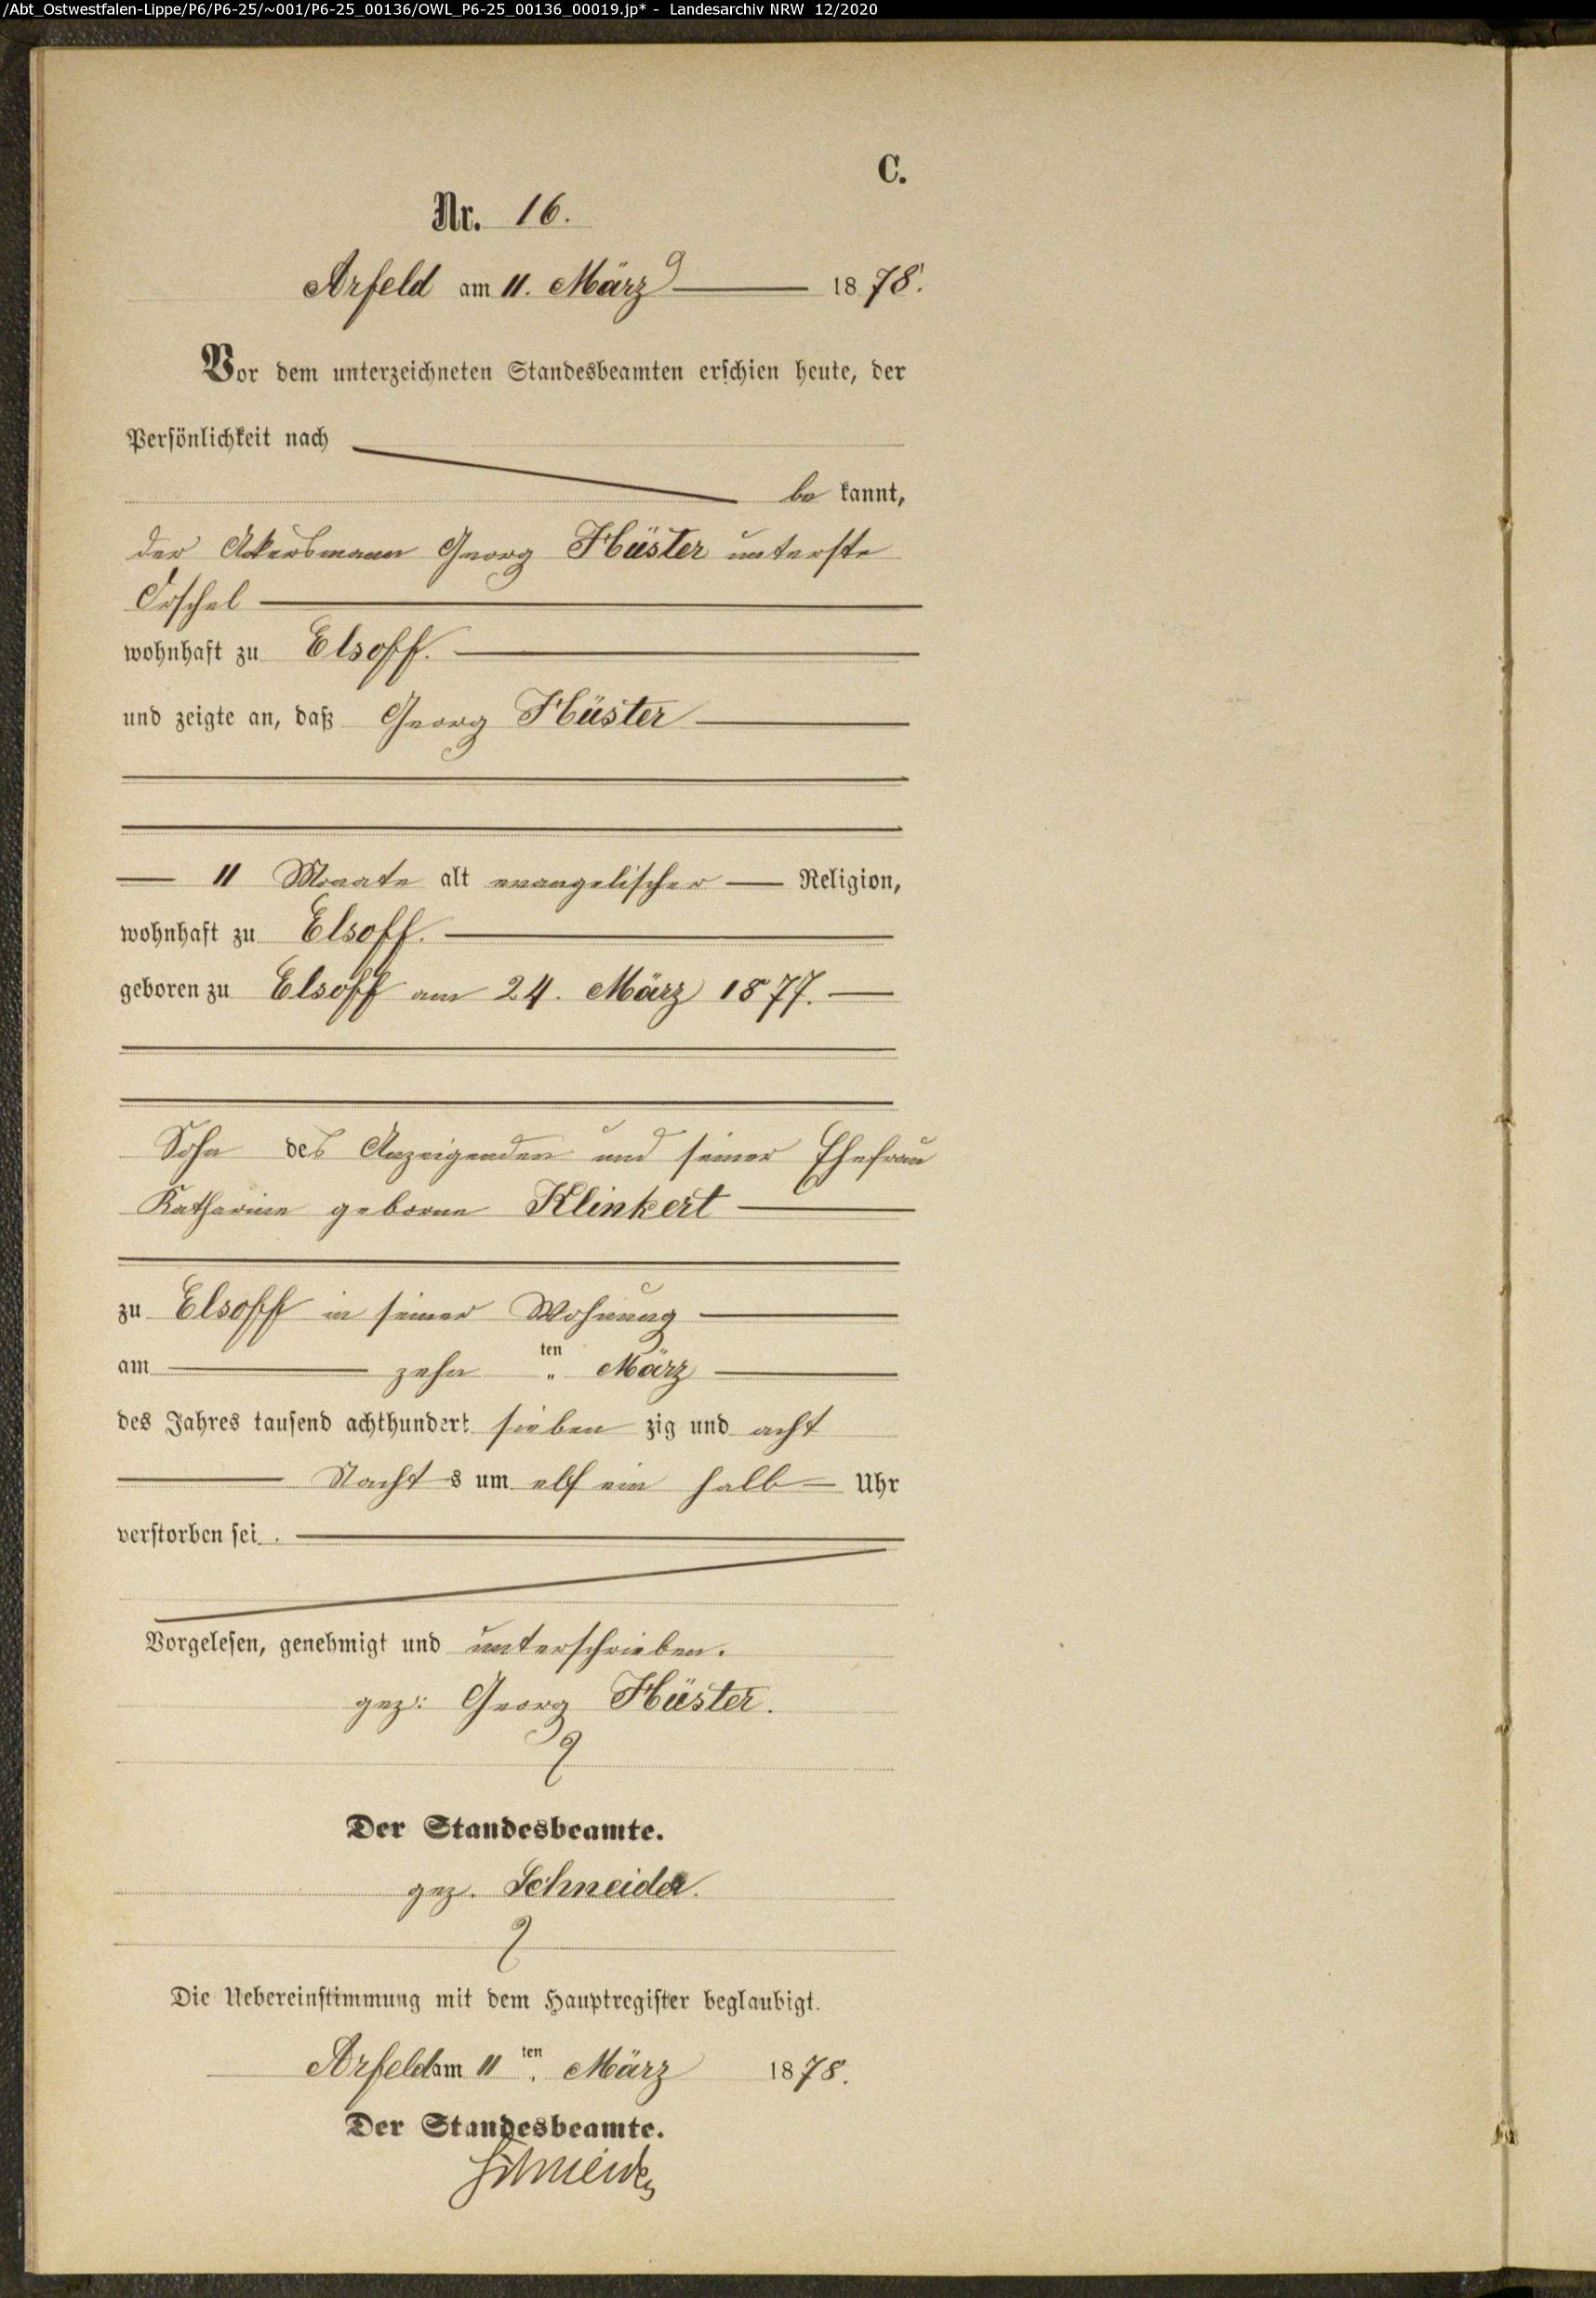 /Abt_Ostwestfalen-Lippe/P6/P6-25/~001/P6-25_00136/OWL_P6-25_00136_00019.jp* - Landesarchiv NRW 12/2020
C.
Nr. 16.
Arfeld am 11. März 1878.
Vor dem unterzeichneten Standesbeamten erschien heute, der
Persönlichkeit nach
be kannt,
der Ackersmann Georg Hüster unterste
wohnhaft zu Elsoff.
und zeigte an, daß Georg Hüster
11 Monate alt evangelischer Religion,
wohnhaft zu Elsoff.
geboren zu Elsoff am 24. März 1877.
Sohn des Anzeigenden und seiner Ehefrau
Katharine geborne Klinkert
zu Elsoff in seiner Wohnung
am zehn ten März
des Jahres tausend achthundert sieben zig und acht
Nacht s um elf ein halb Uhr
verstorben sei.
Vorgelesen, genehmigt und unterschrieben.
gez: Georg Hüster.
Der Standesbeamte.
gez. Schneider.
Die Uebereinstimmung mit dem Hauptregister beglaubigt.
Arfeld am 11 ten März 1878.
Der Standesbeamte.
Schneider